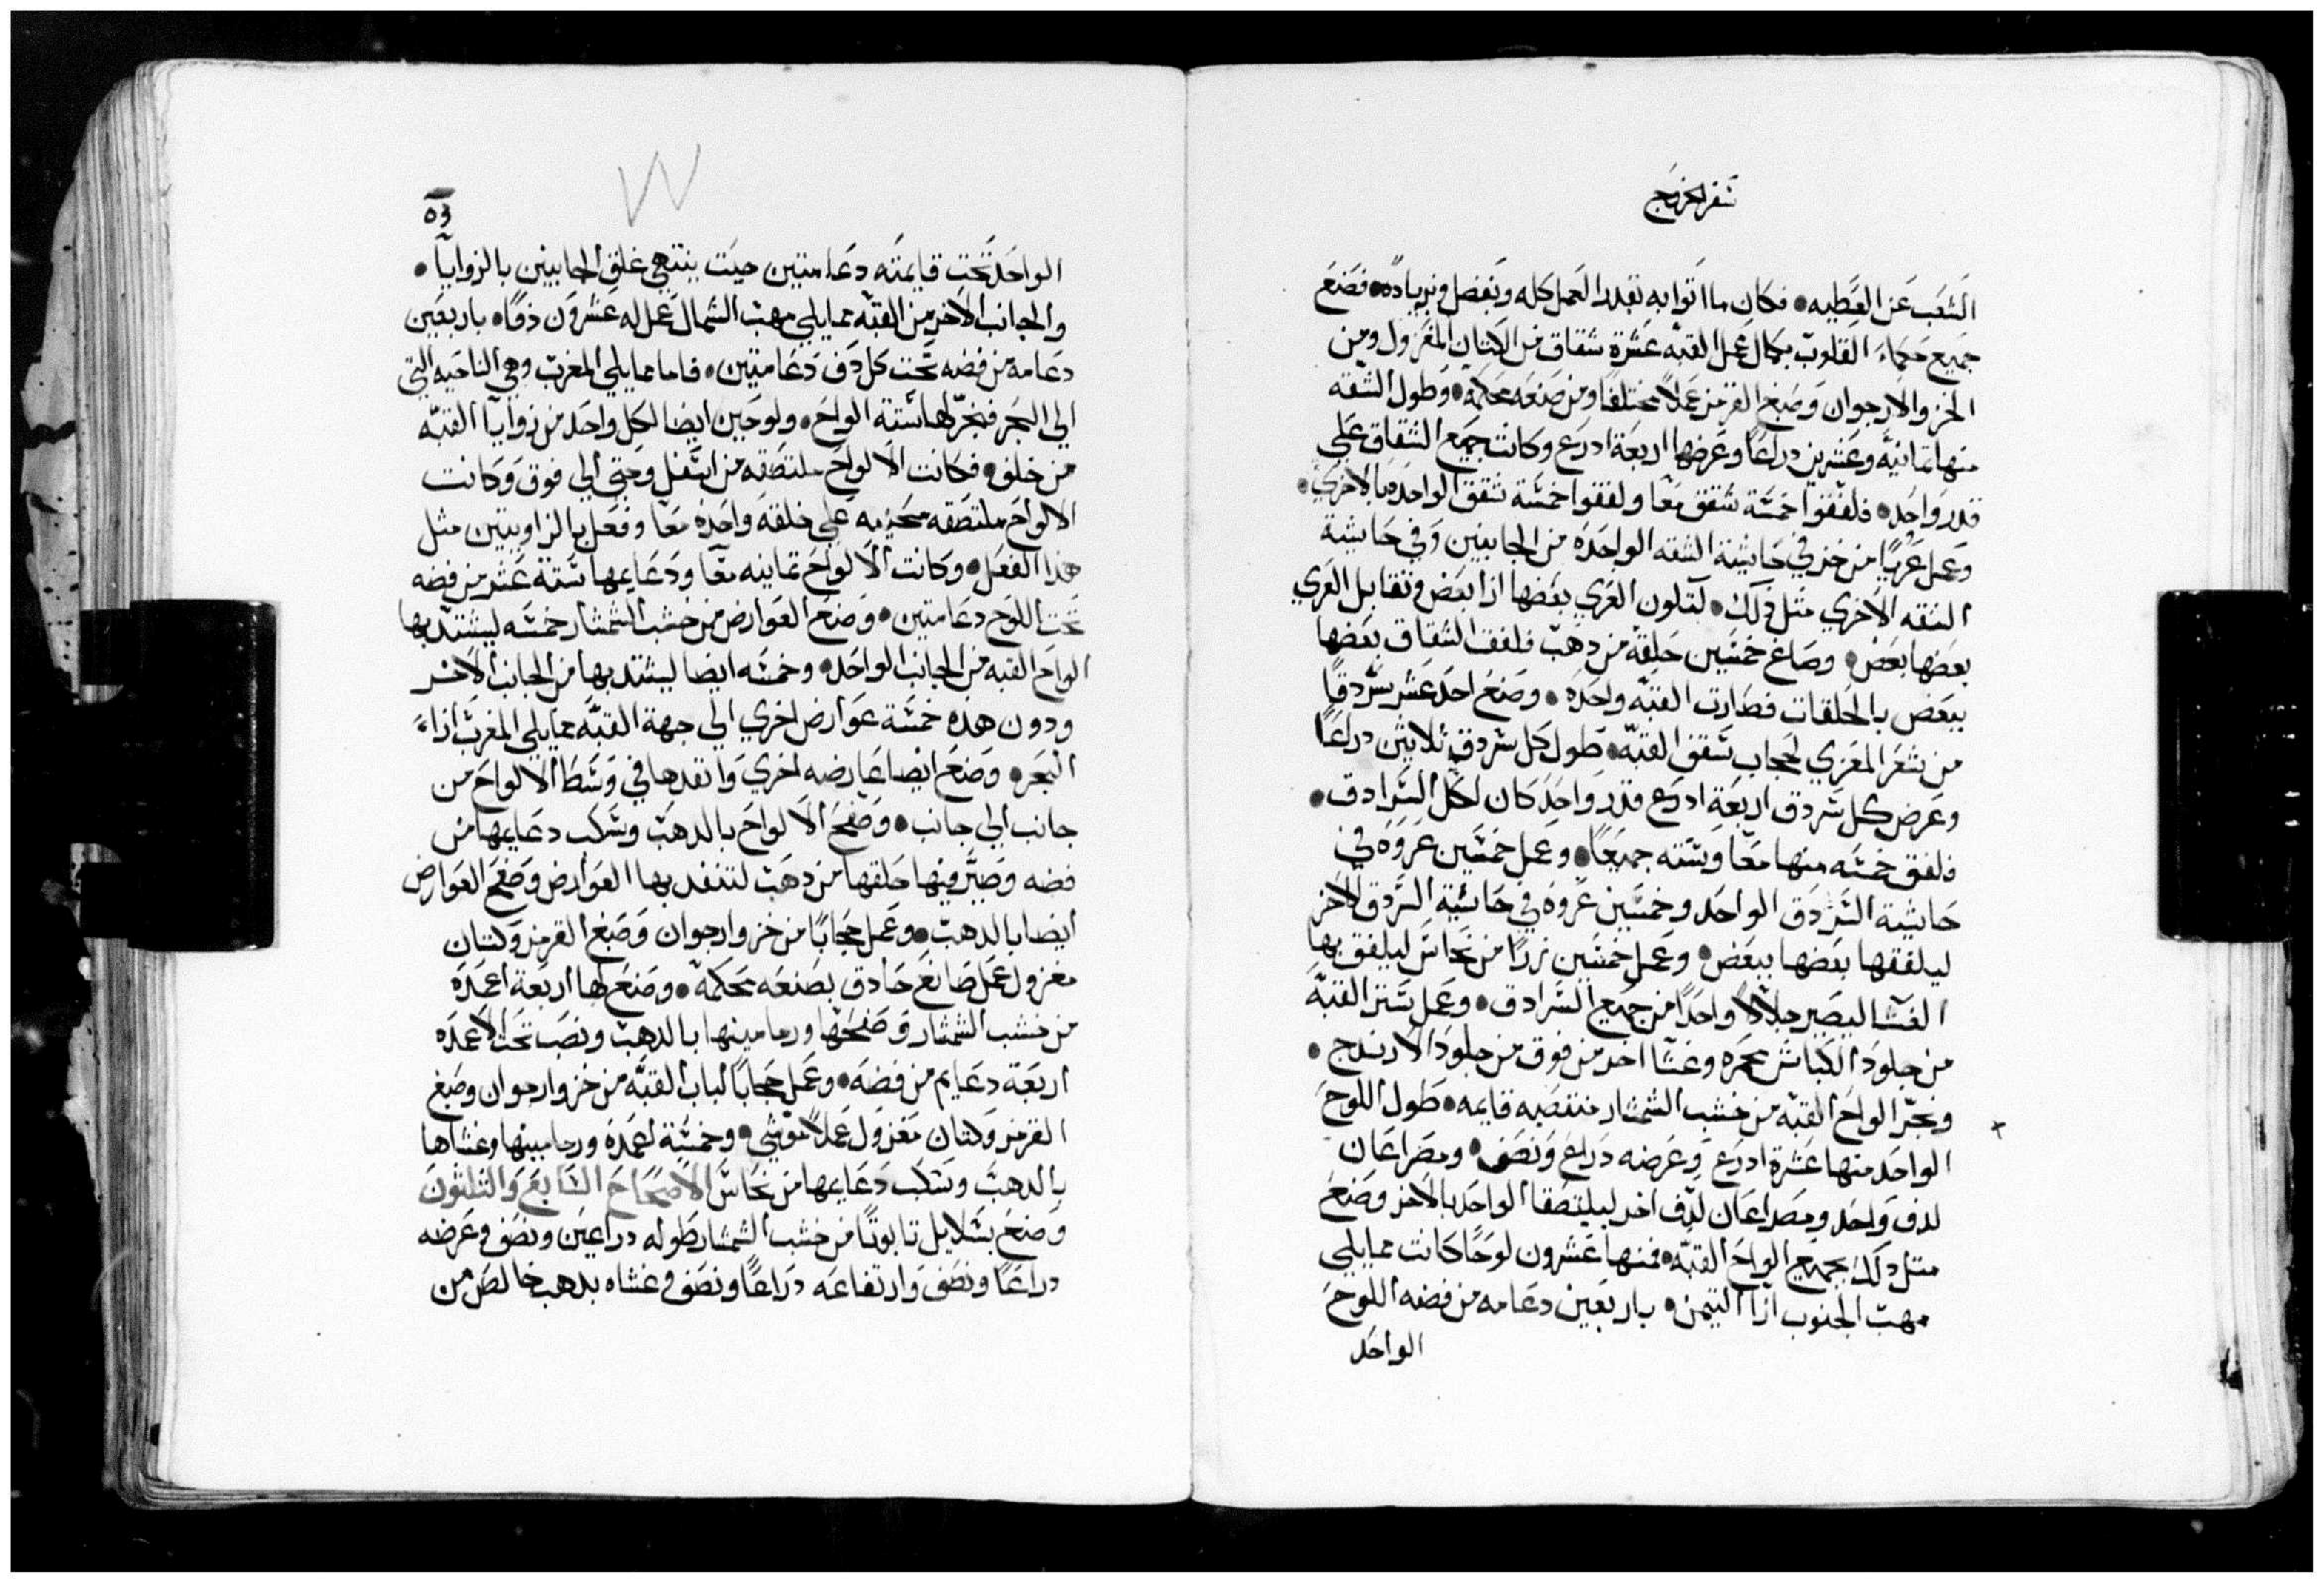 سفر الخروج
الشعب عن العطيه • فكان ما اتوا به بقدر العمل كله ويفضل ويزياده • فصنع
جميع حكماء القلوب بكمال عمل القبه عشرة شقاق من الكتان المغزول ومن
الخز والارجوان وصبغ القرمز عملاً مختلفا ومن صنعه محكمه • وطول الشقه
منها ثمانيه وعشرين دراعاً وعرضها اربعة ادرع وكانت جميع الشقاق علي
قدر واحد • فلفقوا خمسة شقق معا ولفقوا خمسة شقق الواحده بالاخري •
وعمل عرياً من خز في حاشية الشقه الواحده من الجانبين وفي حاشية
الشقه الاخري مثل ذلك • لتكون العري بعضها ازا بعض وتقابل العري
بعضها بعض • وصاغ خمسين حلقة من دهب فلفق الشقاق بعضها
ببعض بالحلقات فصارت القبه واحده • وصنع احد عشر سردقاً
من شعر المعزي لحجاب سقف القبه • طول كل سردق ثلاثين دراعاً
وعرض كل سردق اربعة ادرع قدر واحد كان لكل السرادق •
فلفق خمسه منها معا وسته جميعاً • وعمل خمسين عروه في
حاشية السردق الواحد وخمسين عروة في حاشية السردق الاخر
ليلفقها بعضها ببعض • وعمل خمسين زرا من نحاس ليلفق بها
الغشا ليصير جلالا واحداً من جميع السرادق • وعمل ستر القبه
من جلود الكباش محمره وغشا اخر من فوق من جلود الارندج •
ونجر الواح القبه من خشب الشمشار منتصبه قايمه • طول اللوح
الواحد منها عشرة ادرع وعرضه دراع ونصف • ومصراعان
لدف واحد ومصراعان لدف اخر ليلتصقا الواحد بالاخر وصنع
مثل دلك بجميع الواح القبه • فمنها عشرون لوحاً كانت مما يلي
مهب الجنوب ازا التيمن • باربعين دعامه من فضه اللوح
الواحد
٥٣
الواحد تحت قايمته دعامتين حيث ينتهي غلق الجانبين بالزوايا •
والجانب الاخر من القبه مما يلي مهب الشمال عمل له عشرون دفا • باربعين
دعامه من فضه تحت كل دف دعامتين • فاما مما يلي المغرب وهي الناحيه التي
الي البحر فنجر لها ستة الواح • ولوحين ايضا لكل واحد من زوايا القبه
من خلف • فكانت الالواح ملتصقه من اسفل وحتي الي فوق وكانت
الالواح ملتصقه علي حلقه واحده معا وفعل بالزاويتين مثل
هذا الفعل • وكانت الالواح تمانيه معا ودعايمها ستة عشر من فضه
تحت اللوح دعامتين • وصنع العوارض من خشب الشمشار خمسه ليشتد بها
الواح القبه من الجانب الواحد • وخمسه ايضا ليشتد بها من الجانب الاخر
ودون هذه خمسة عوارض اخري الي جهة القبه مما يلي المغرب ازاء
البحر • وصنع ايضا عارضه اخري وانفدها في وسط الالواح من
جانب الي جانب • وصفح الالواح بالدهب وسكب دعايمها من
فضه وصير فيها حلقها من دهب لتنفد بها العوارض وصفح العوارض
ايضا بالدهب • وعمل حجاباً من خز وارجوان وصبغ القرمز وكتان
مغزول عمل صانع حادق بصنعه محكمه • وصنع لها اربعة اعمده
من خشب الشمشار وصفحها ورمامينها بالدهب ونصب تحت الاعمده
اربعة دعايم من فضه • وعمل حجاباً لباب القبه من خز وارجوان وصبغ
القرمز وكتان مغزول عملا موشي • وخمسة اعمده ورمامينها وغشاها
بالدهب وسكب دعايمها من نحاس الاصحاح السابع والثلثون
وصنع بسلاييل تابوتاً من خشب الشمشار طوله دراعين ونصف وعرضه
دراعاً ونصف وارتفاعه دراعاً ونصف وغشاه بدهب خالص من